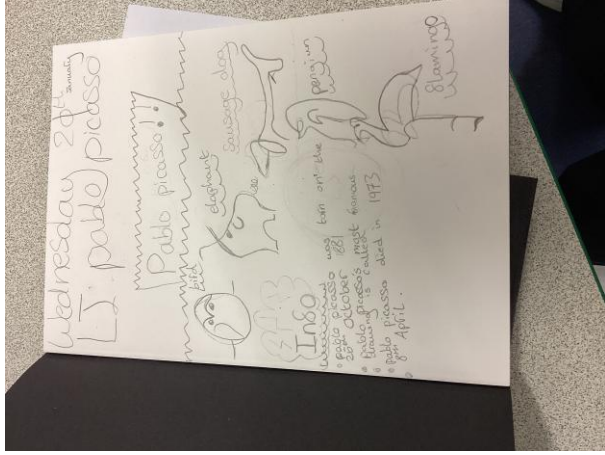 Wednesday 20th January
LI: pablo picasso
Pablo picasso!!
bird
elephant
sausage dog
pengiun
flamingo
Info
pablo picasso was born on the
25th October 1881
pablo picasso's most famous
drawing is called
pablo picasso died in 1973
8th April.